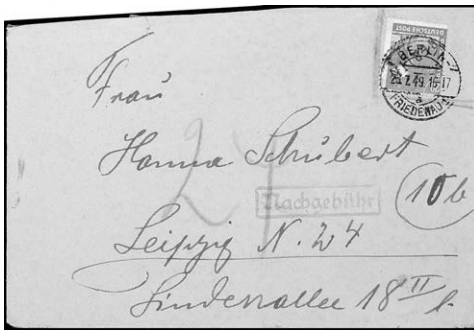 DEUTSCHE POST
BERLIN-
FRIEDENAU
7.49.16-17
Frau
Hanna Schubert
24
Nachgebühr
10b
Leipzig N. 24
Lindenallee 18 II